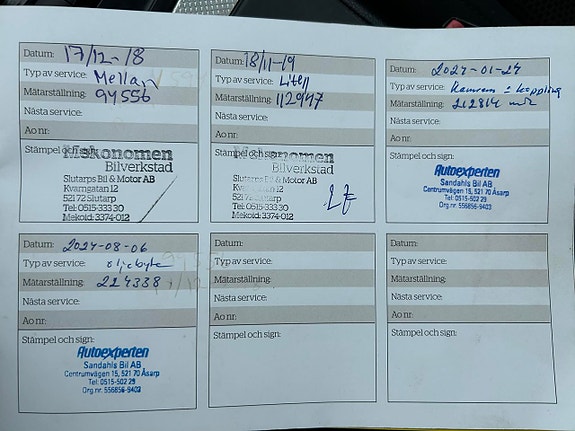 Datum: 17/12-18
Typ av service: Mellan
Mätarställning 94556
Nästa service:
Ao nr:
Stämpel och sign:
Mekonomen
Bilverkstad
Slutarps Bil & Motor AB
Kvarngatan 12
521 72 Slutarp
Tel: 0515-333 30
Mekoid: 3374-012
Datum: 18/11-19
Typ av service: Liten
Mätarställning
Nästa service:
Ao nr:
Stämpel och sign:
Mekonomen
Bilverkstad
Slutarps Bil & Motor AB
Kvarngatan 12
521 72 Slutarp
Tel: 0515-333 30
Mekoid: 3374-012
Datum: 2024-01-24
Typ av service: Kamrem + koppling
Mätarställning: 212814
Nästa service:
Ao nr:
Stämpel och sign:
Autoexperten
Sandahls Bil AB
Centrumvägen 15, 521 70 Åsarp
Tel: 0515-502 29
Org.nr: 556856-9403
Datum: 2024-08-06
Typ av service: oljebyte
Mätarställning: 224338
Nästa service:
Ao nr:
Stämpel och sign:
Autoexperten
Sandahls Bil AB
Centrumvägen 15, 521 70 Åsarp
Tel: 0515-502 29
Org.nr: 556856-9403
Datum:
Typ av service:
Mätarställning:
Nästa service:
Ao nr:
Stämpel och sign:
Datum:
Typ av service:
Mätarställning:
Nästa service:
Ao nr:
Stämpel och sign: